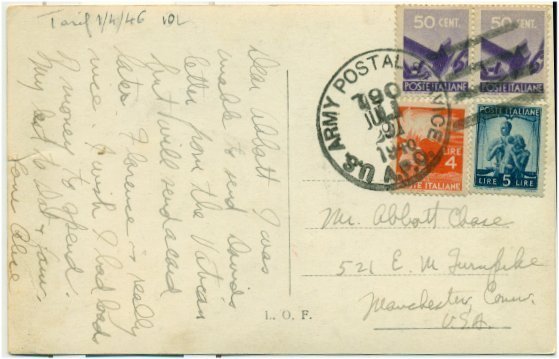 Tarif 1/4/46 10L
Dear Abbott I was
unable to send David's
letter from the Vatican
but will send a card
later. Florence is really
nice. I wish I had loads
of money to spend.
My best to Dot & fam.
Love
50 CENT. 50 CENT.
POSTE ITALIANE POSTE ITALIANE
U.S. ARMY POSTAL SERVICE
A.P.O.
LIRE
4
POSTE ITALIANE
POSTE ITALIANE
LIRE 5 LIRE
Mr. Abbott Chase
521 E. M Turnpike
Manchester, Conn.
USA.
L. O. F.